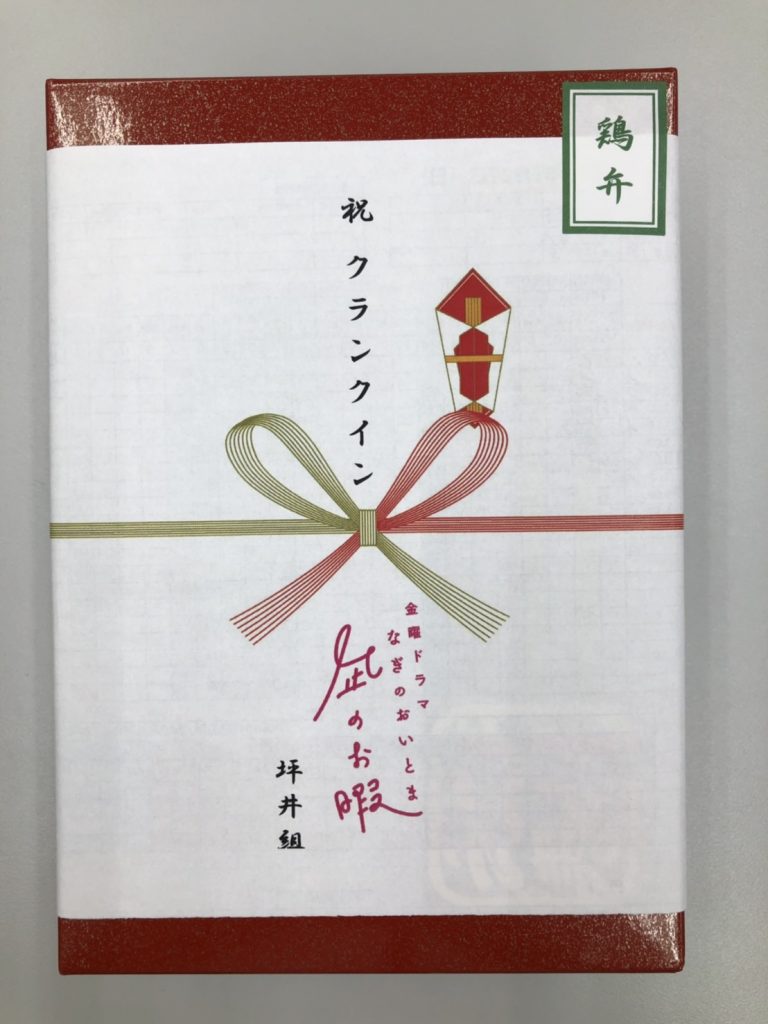 鶏弁
祝 クランクイン
金曜ドラマ
なぎのおいとま
凪のお暇
坪井組